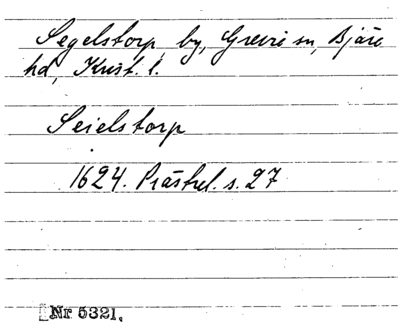 Segelstorp by, Grevie sn, Bjäre
hd, Krist. l.
Seielstorp
1624. Prästrel. s. 27
Nr 5321,